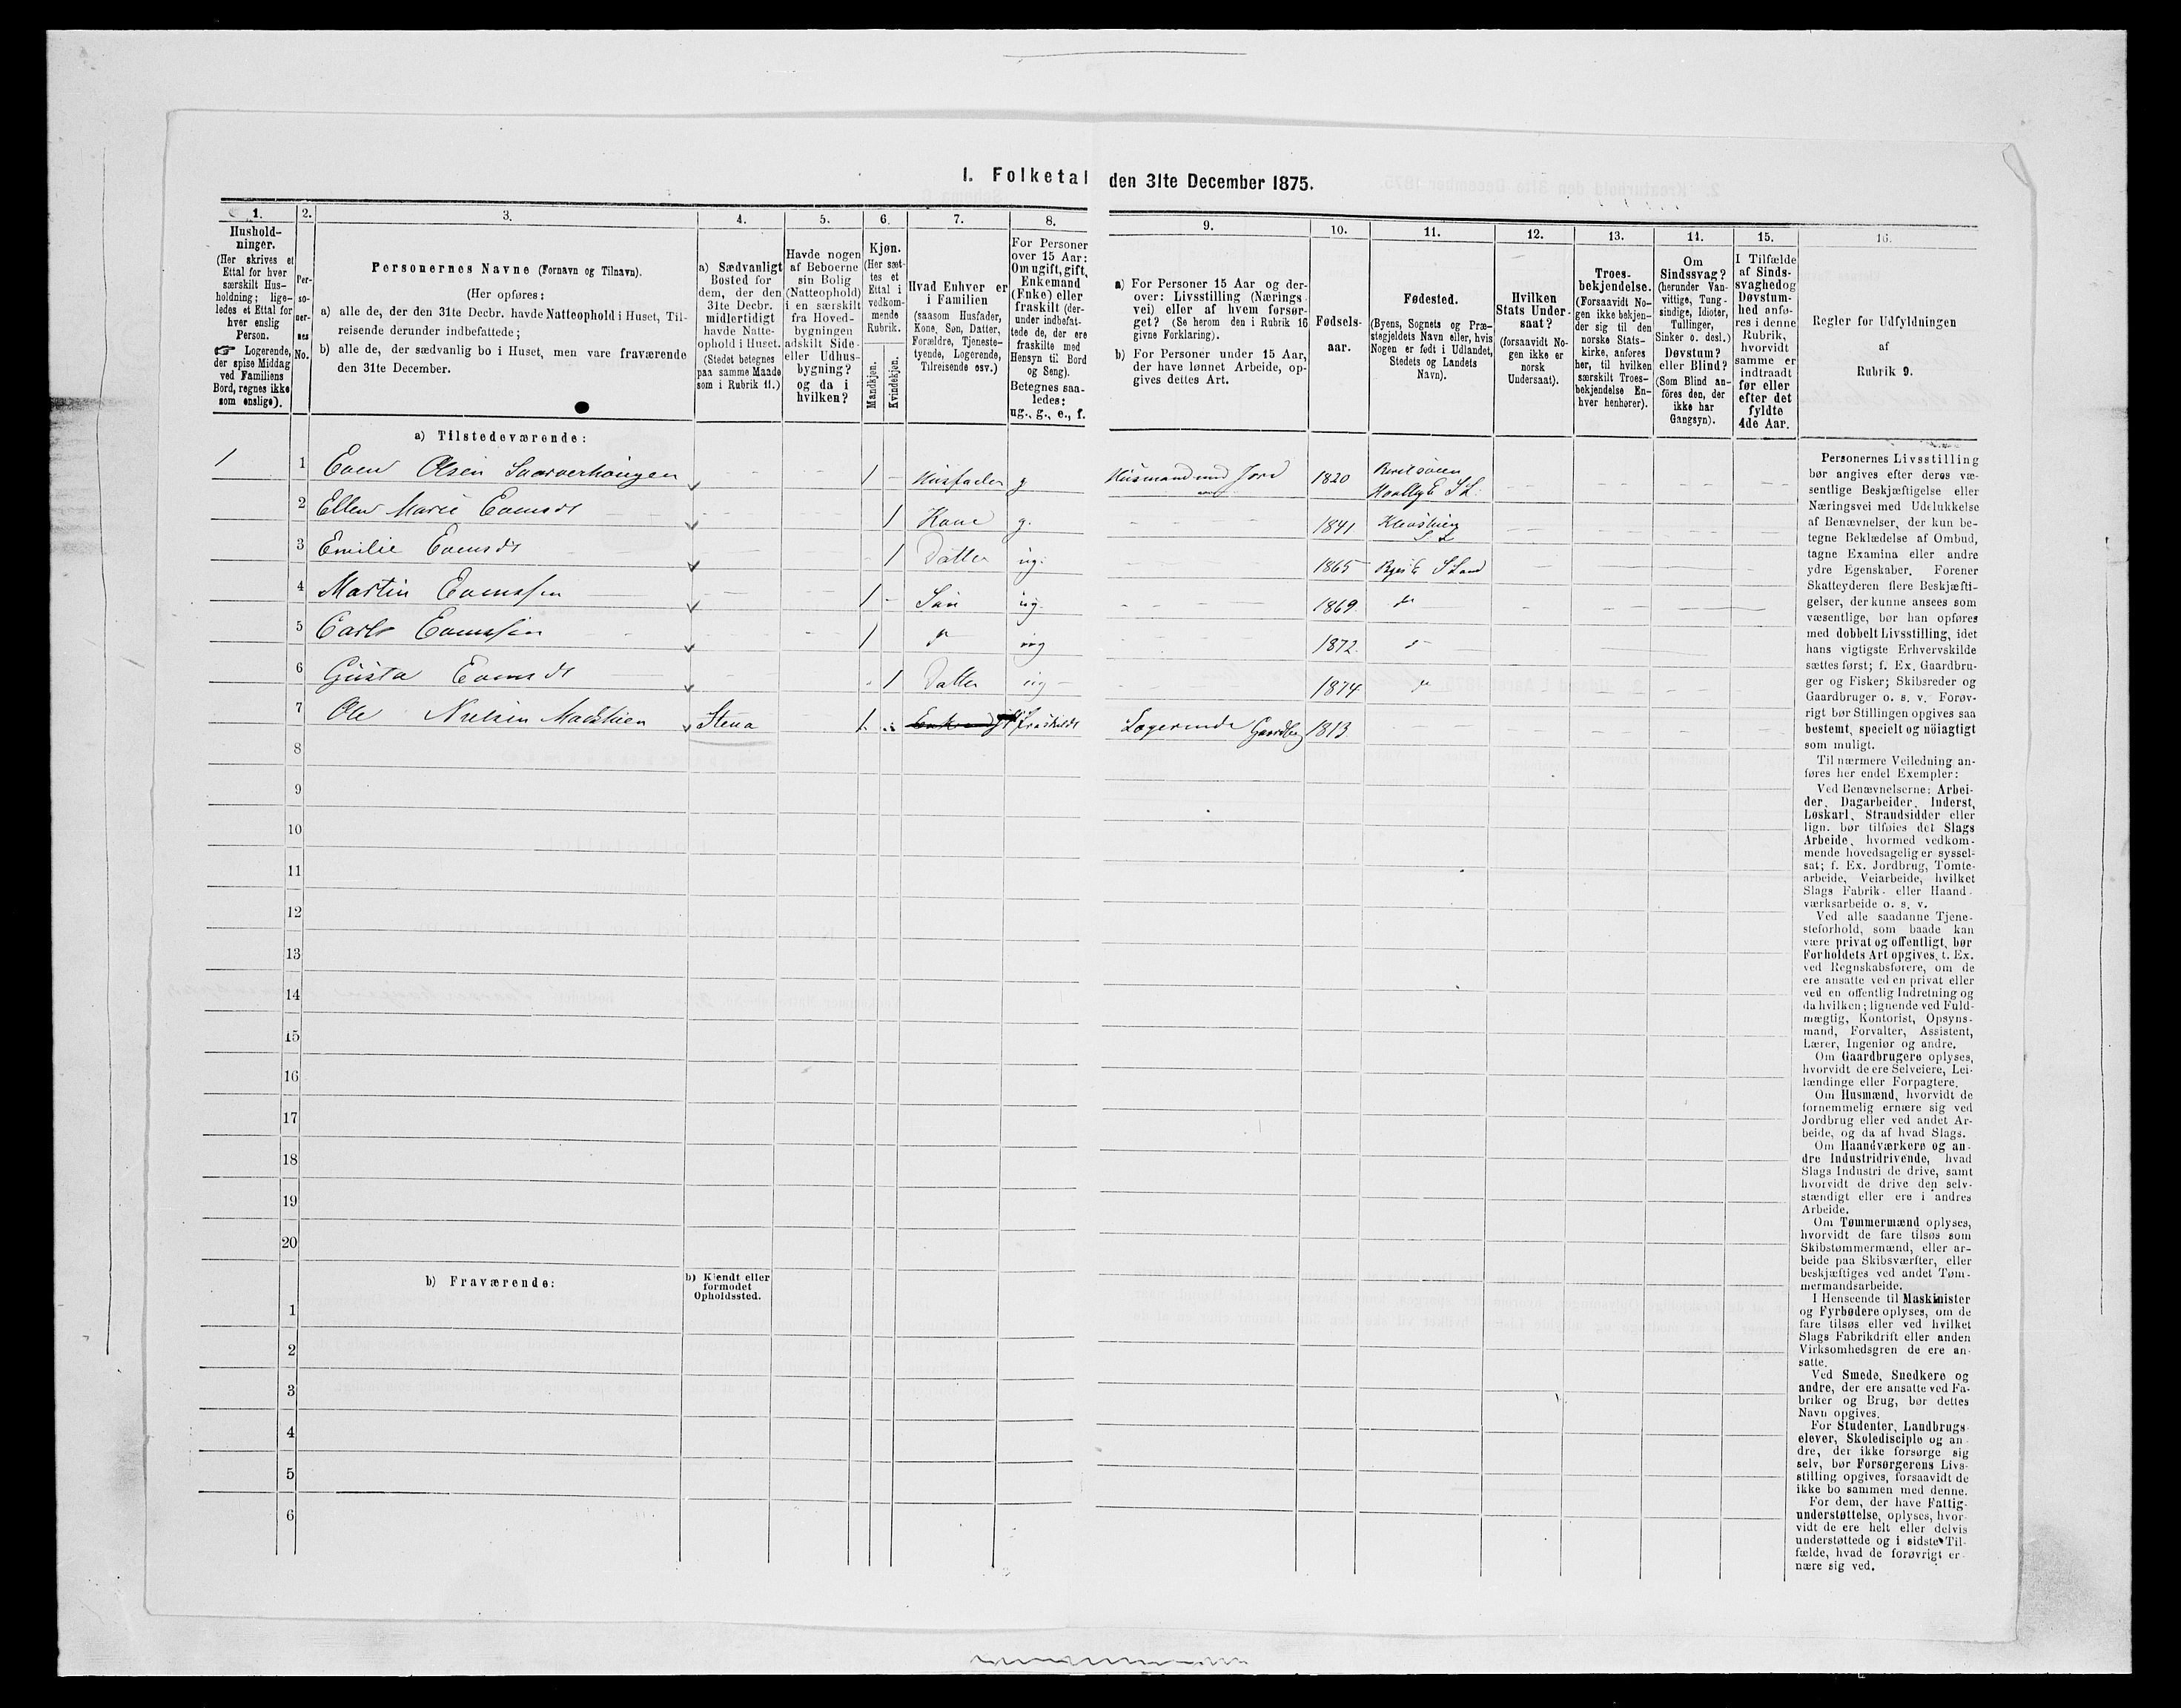 I. Folketal den 31te December 1875.
1. 2. 3. 4. 5. 6. 7. 8. 9. 10. 11. 12. 13. 14. 15. 16.
Hushold-
ninger.
(Her skrives et
Ettal for hver
særskilt Hus-
holdning; lige-
ledes et Ettal for
hver enslig
Person.
☞ Logerende,
der spise Middag
ved Familiens
Bord, regnes ikke
som enslige).
Per-
so-
ner-
nes
No.
Personernes Navne (Fornavn og Tilnavn).
(Her opføres:
a) alle de, der den 31te Decbr. havde Natteophold i Huset, Til-
reisende derunder indbefattede;
b) alle de, der sædvanlig bo i Huset, men vare fraværende
den 31te December.
a) Sædvanligt
Bosted for
dem, der den
31te Decbr.
midlertidigt
havde Natte-
ophold i Huset.
(Stedet betegnes
paa samme Maade
som i Rubrik 11.)
Havde nogen
af Beboerne
sin Bolig
(Natteophold)
i en særskilt
fra Hoved-
bygningen
adskilt Side-
eller Udhus-
bygning?
og da i
hvilken?
Kjøn.
(Her sæt-
tes et
Ettal i
vedkom-
mende
Rubrik.
Mandkjøn.
Kvindekjøn.
Hvad Enhver er
i Familien
(saasom Husfader,
Kone, Søn, Datter,
Forældre, Tjeneste-
tyende, Logerende,
Tilreisende osv.)
For Personer
over 15 Aar:
Om ugift, gift,
Enkemand
(Enke) eller
fraskilt (der-
under indbefat-
tede de, der ere
fraskilte med
Hensyn til Bord
og Seng).
Betegnes saa-
ledes:
ug., g., e., f.
a) For Personer 15 Aar og der-
over: Livsstilling (Nærings-
vei) eller af hvem forsør-
get? (Se herom den i Rubrik 16
givne Forklaring).
b) For Personer under 15 Aar,
der have lønnet Arbeide, op-
gives dettes Art.
Fødsels-
aar.
Fødested.
(Byens, Sognets og Præ-
stegjeldets Navn eller, hvis
Nogen er født i Udlandet,
Stedets og Landets
Navn).
Hvilken
Stats Under-
saat?
(forsaavidt No-
gen ikke er
norsk
Undersaat).
Troes-
bekjendelse.
(Forsaavidt No-
gen ikke bekjen-
der sig til den
norske Stats-
kirke, anføres
her, til hvilken
særskilt Troes-
bekjendelse En-
hver henhører).
Om
Sindssvag?
(herunder Van-
vittige, Tung-
sindige, Idioter,
Tullinger,
Sinker o. desl.)
Døvstum?
eller Blind?
(Som Blind an-
føres den, der
ikke har
Gangsyn).
I Tilfælde
af Sinds-
svaghed og
Døvstum-
hed anfø-
res i denne
Rubrik,
hvorvidt
samme er
indtraadt
før eller
efter det
fyldte
4de Aar.
Regler for Udfyldningen
af
Rubrik 9.
a) Tilstedeværende:
1 1 Even Olsen 1 Husfader g Husmand med Jord 1820 S L.
2 Ellen Marie Evensdt 1 Kone g. 1841 S L
3 Emilie Evensdt 1 Datter ug. 1865 S Land
4 Martin Evensen 1 Søn ug. 1869.
5 Carl Evensen 1 ug 1872.
6 Gusta Evensdt 1 Datter ug 1874
7 Ole Nielsen Stena 1. fraskildt Logerende 1813.
8
9
10
11
12
13
14
15
16
17
18
19
20
b) Fraværende:
b) Kjendt eller
formodet
Opholdssted.
1
2
3
4
5
6
Personernes Livsstilling
bør angives efter deres væ-
sentlige Beskjæftigelse eller
Næringsvei med Udelukkelse
af Benævnelser, der kun be-
tegne Beklædelse af Ombud,
tagne Examina eller andre
ydre Egenskaber. Forener
Skatteyderen flere Beskjæfti-
gelser, der kunne ansees som
væsentlige, bør han opføres
med dobbelt Livsstilling, idet
hans vigtigste Erhvervskilde
sættes først; f. Ex. Gaardbru-
ger og Fisker; Skibsreder og
Gaardbruger o. s. v. Forøv-
rigt bør Stillingen opgives saa
bestemt, specielt og nöiagtigt
som muligt.
Til nærmere Veiledning an-
føres her endel Exempler:
Ved Benævnelserne: Arbei-
der, Dagarbeider, Inderst,
Løskarl, Strandsidder eller
lign. bør tilføies det Slags
Arbeide, hvormed vedkom-
mende hovedsagelig er syssel-
sat; f. Ex. Jordbrug, Tomte-
arbeide, Veiarbeide, hvilket
Slags Fabrik- eller Haand-
værksarbeide o. s. v.
Ved alle saadanne Tjene-
steforhold, som baade kan
være privat og offentligt, bør
Forholdets Art opgives, t. Ex.
ved Regnskabsførere, om de
ere ansatte ved en privat eller
ved en offentlig Indretning og
da hvilken; lignende ved Fuld-
mægtig, Kontorist, Opsyns-
mand, Forvalter, Assistent,
Lærer, Ingeniør og andre.
Om Gaardbrugere oplyses,
hvorvidt de ere Selveiere, Lei-
lændinge eller Forpagtere.
Om Husmænd, hvorvidt de
fornemmelig ernære sig ved
Jordbrug eller ved andet Ar-
beide, og da af hvad Slags.
Om Haandværkere og an-
dre Industridrivende, hvad
Slags Industri de drive, samt
hvorvidt de drive den selv-
stændigt eller ere i andres
Arbeide.
Om Tømmermænd oplyses,
hvorvidt de fare tilsøs som
Skibstømmermænd, eller ar-
beide paa Skibsværfter, eller
beskjæftiges ved andet Tøm-
mermandsarbeide.
I Henseende til Maskinister
og Fyrbødere oplyses, om de
fare tilsøs eller ved hvilket
Slags Fabrikdrift eller anden
Virksomhedsgren de ere an-
satte.
Ved Smede, Snedkere og
andre, der ere ansatte ved Fa-
briker og Brug, bør dettes
Navn opgives.
For Studenter, Landbrugs-
elever, Skoledisciple og an-
dre, der ikke forsørge sig
selv, bør Forsørgerens Livs-
stilling opgives, forsaavidt de
ikke bo sammen med denne.
For dem, der have Fattig-
understøttelse, oplyses, hvor-
vidt de ere helt eller delvis
understøttede og i sidste Til-
fælde, hvad de forøvrigt er-
nære sig ved.